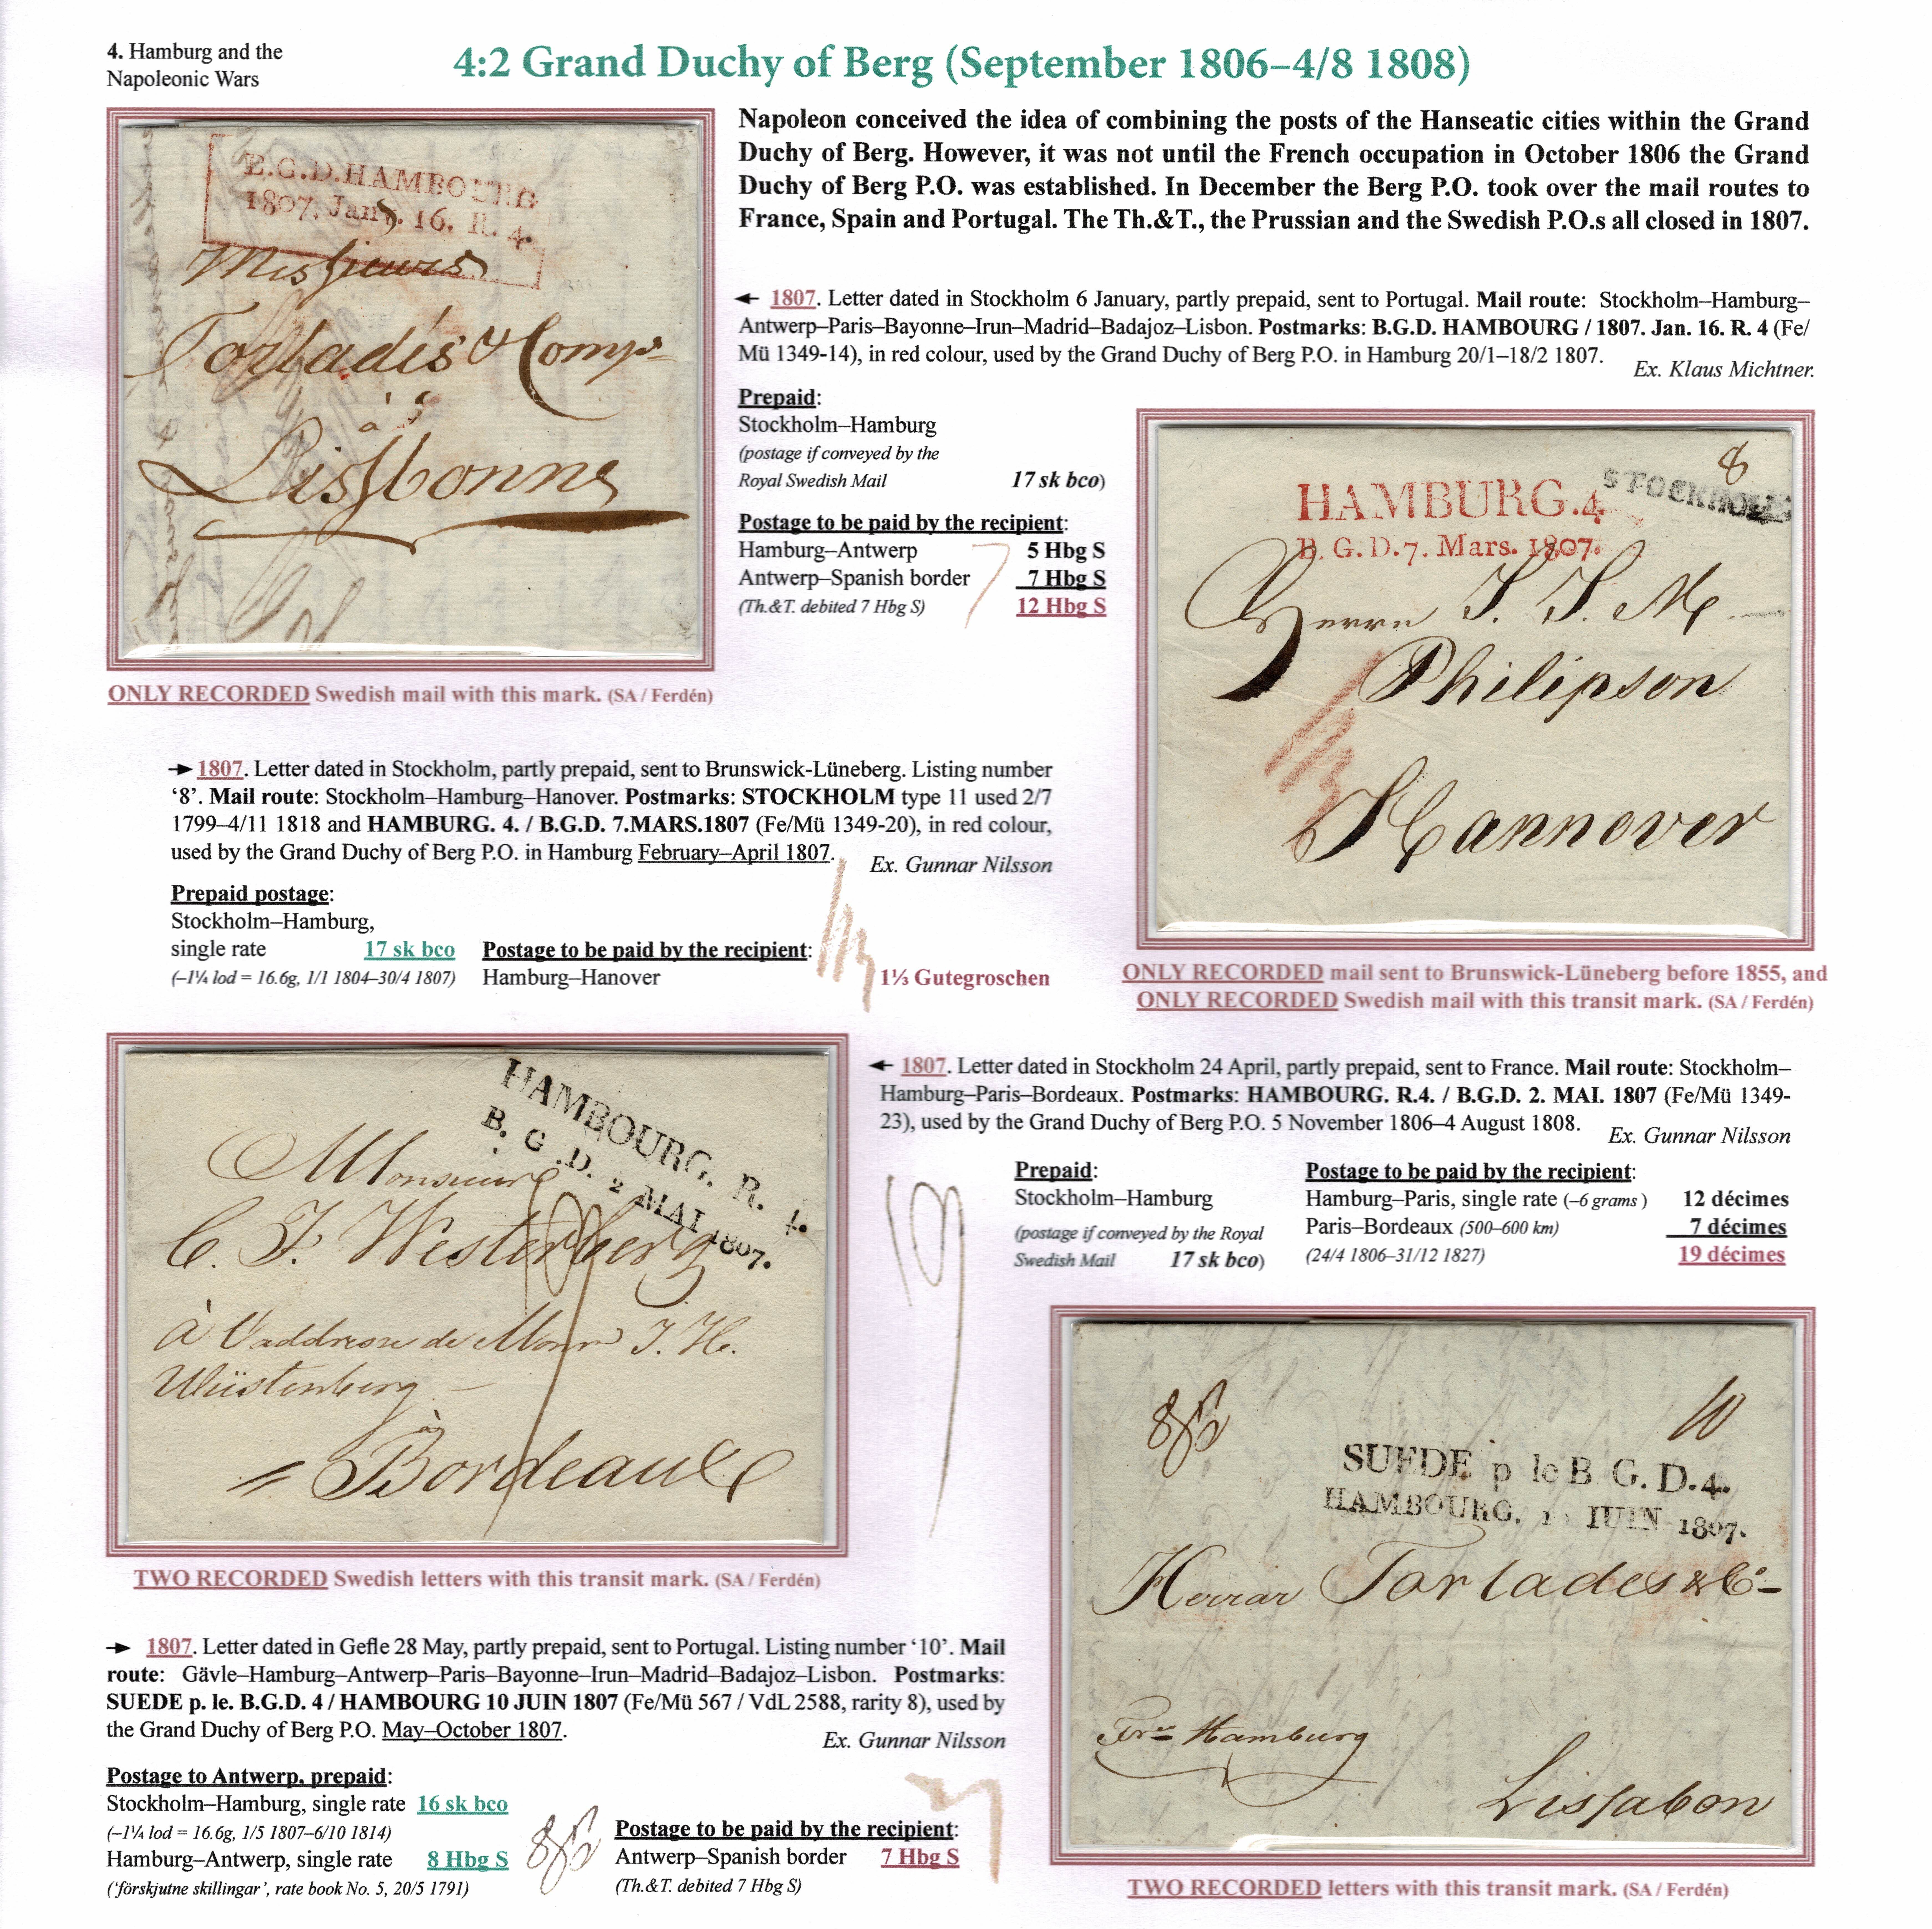 4. Hamburg and the
Napoleonic Wars
4:2 Grand Duchy of Berg (September 1806–4/8 1808)
Napoleon conceived the idea of combining the posts of the Hanseatic cities within the Grand
Duchy of Berg. However, it was not until the French occupation in October 1806 the Grand
Duchy of Berg P.O. was established. In December the Berg P.O. took over the mail routes to
France, Spain and Portugal. The Th.&T., the Prussian and the Swedish P.O.s all closed in 1807.
B.G.D.HAMBOURG
1807. Jan. 16. R. 4.
Messieurs
Torladés & Comp
à
Lissbonne
ONLY RECORDED Swedish mail with this mark. (SA / Ferdén)
← 1807. Letter dated in Stockholm 6 January, partly prepaid, sent to Portugal. Mail route: Stockholm–Hamburg–
Antwerp–Paris–Bayonne–Irun–Madrid–Badajoz–Lisbon. Postmarks: B.G.D. HAMBOURG / 1807. Jan. 16. R. 4 (Fe/
Mü 1349-14), in red colour, used by the Grand Duchy of Berg P.O. in Hamburg 20/1–18/2 1807.
Ex. Klaus Michtner.
Prepaid:
Stockholm–Hamburg
(postage if conveyed by the
Royal Swedish Mail 17 sk bco)
Postage to be paid by the recipient:
Hamburg–Antwerp 5 Hbg S
Antwerp–Spanish border 7 Hbg S
(Th.&T. debited 7 Hbg S) 12 Hbg S
7
8
STOCKHOLM
HAMBURG.4
B. G. D. 7. Mars. 1807.
Herrn S. S. M.
Philipson
Hannover
ONLY RECORDED mail sent to Brunswick-Lüneberg before 1855, and
ONLY RECORDED Swedish mail with this transit mark. (SA / Ferdén)
→ 1807. Letter dated in Stockholm, partly prepaid, sent to Brunswick-Lüneberg. Listing number
‘8’. Mail route: Stockholm–Hamburg–Hanover. Postmarks: STOCKHOLM type 11 used 2/7
1799–4/11 1818 and HAMBURG. 4. / B.G.D. 7.MARS.1807 (Fe/Mü 1349-20), in red colour,
used by the Grand Duchy of Berg P.O. in Hamburg February–April 1807.
Ex. Gunnar Nilsson
Prepaid postage:
Stockholm–Hamburg,
single rate 17 sk bco
(–1¼ lod = 16.6g, 1/1 1804–30/4 1807)
Postage to be paid by the recipient:
Hamburg–Hanover 1⅓ Gutegroschen
HAMBOURG. R. 4.
B. G. D. 2 MAI 1807.
Monsieur
C. F. Westerberg
19
à l'addresse de Monr J. H.
Wüstenberg
à
Bordeaux
TWO RECORDED Swedish letters with this transit mark. (SA / Ferdén)
← 1807. Letter dated in Stockholm 24 April, partly prepaid, sent to France. Mail route: Stockholm–
Hamburg–Paris–Bordeaux. Postmarks: HAMBOURG. R.4. / B.G.D. 2. MAI. 1807 (Fe/Mü 1349-
23), used by the Grand Duchy of Berg P.O. 5 November 1806–4 August 1808.
Ex. Gunnar Nilsson
19
Prepaid:
Stockholm–Hamburg
(postage if conveyed by the Royal
Swedish Mail 17 sk bco)
Postage to be paid by the recipient:
Hamburg–Paris, single rate (–6 grams ) 12 décimes
Paris–Bordeaux (500–600 km) 7 décimes
(24/4 1806–31/12 1827) 19 décimes
10
SUEDE p le B. G. D. 4.
HAMBOURG. 1 JUIN 1807.
Herrar Torlades & Co
Frco Hamburg
Lissabon
TWO RECORDED letters with this transit mark. (SA / Ferdén)
→ 1807. Letter dated in Gefle 28 May, partly prepaid, sent to Portugal. Listing number ‘10’. Mail
route: Gävle–Hamburg–Antwerp–Paris–Bayonne–Irun–Madrid–Badajoz–Lisbon. Postmarks:
SUEDE p. le. B.G.D. 4 / HAMBOURG 10 JUIN 1807 (Fe/Mü 567 / VdL 2588, rarity 8), used by
the Grand Duchy of Berg P.O. May–October 1807.
Ex. Gunnar Nilsson
Postage to Antwerp, prepaid:
Stockholm–Hamburg, single rate 16 sk bco
(–1¼ lod = 16.6g, 1/5 1807–6/10 1814)
Hamburg–Antwerp, single rate 8 Hbg S
(‘förskjutne skillingar’, rate book No. 5, 20/5 1791)
Postage to be paid by the recipient:
Antwerp–Spanish border 7 Hbg S
(Th.&T. debited 7 Hbg S)
7